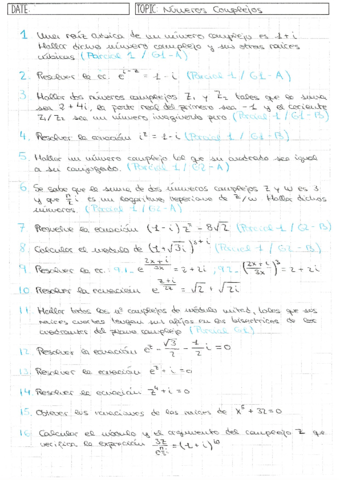 DATE: TOPIC: Números Complejos
1 Una raíz cúbica de un número complejo es 1+i
Hallar dicho número complejo y sus otras raíces
cúbicas (Parcial 1 / G1-A)
2. Resolver la ec. e^{i-z} = 1-i (Parcial 1 / G1-A)
3 Hallar dos números complejos z₁ y z₂ tales que se suma
sea 2+4i, la parte real del primero sea -1 y el cociente
z₁/z₂ sea un número imaginario puro (Parcial 1 / G1-B)
4. Resolver la ecuación i^z = 1-i (Parcial 1 / G1-B)
5. Hallar un número complejo tal que su cuadrado sea igual
a su conjugado. (Parcial 1 / G2-A)
6 Se sabe que la suma de dos números complejos z y w es 3
y que π/2 i es un logaritmo neperiano de z/w Hallar dichos
números. (Parcial 1 / G2-A)
7 Resuelve la ecuación (1-i) z³ = 8√2 (Parcial 1 / G2-B)
8 Calcular el módulo de (1+√3i)^{2+i} (Parcial 1 / G2-B)
9 Resolver la ec: 9.1. e^{(2x+i)/3x} = 2+2i ; 9.2. ((2x+i)/3x)³ = 2+2i
10 Resolver la ecuación e^{(z+i)/2z} = √2 + √2i
11 Hallar todos los nº complejos de módulo unidad, tales que sus
raíces cuartas tengan sus afijos en las bisectrices de los
cuadrantes del plano complejo (Parcial G2)
12 Resolver la ecuación e^z - √3/2 - 1/2 i = 0
13 Resolver la ecuación e^z + i = 0
14 Resolver la ecuación z⁴ + i = 0
15 Obtener las ecuaciones de las raíces de x⁵ + 32 = 0
16 Calcular el módulo y el argumento del complejo z que
verifica la expresión = (1+i)